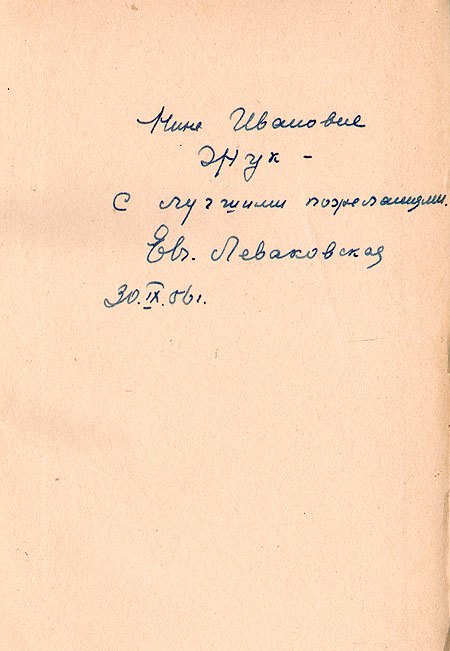 Нине Ивановне
Жук –
с лучшими пожеланиями.
Евг. Леваковская
30.IX.56г.